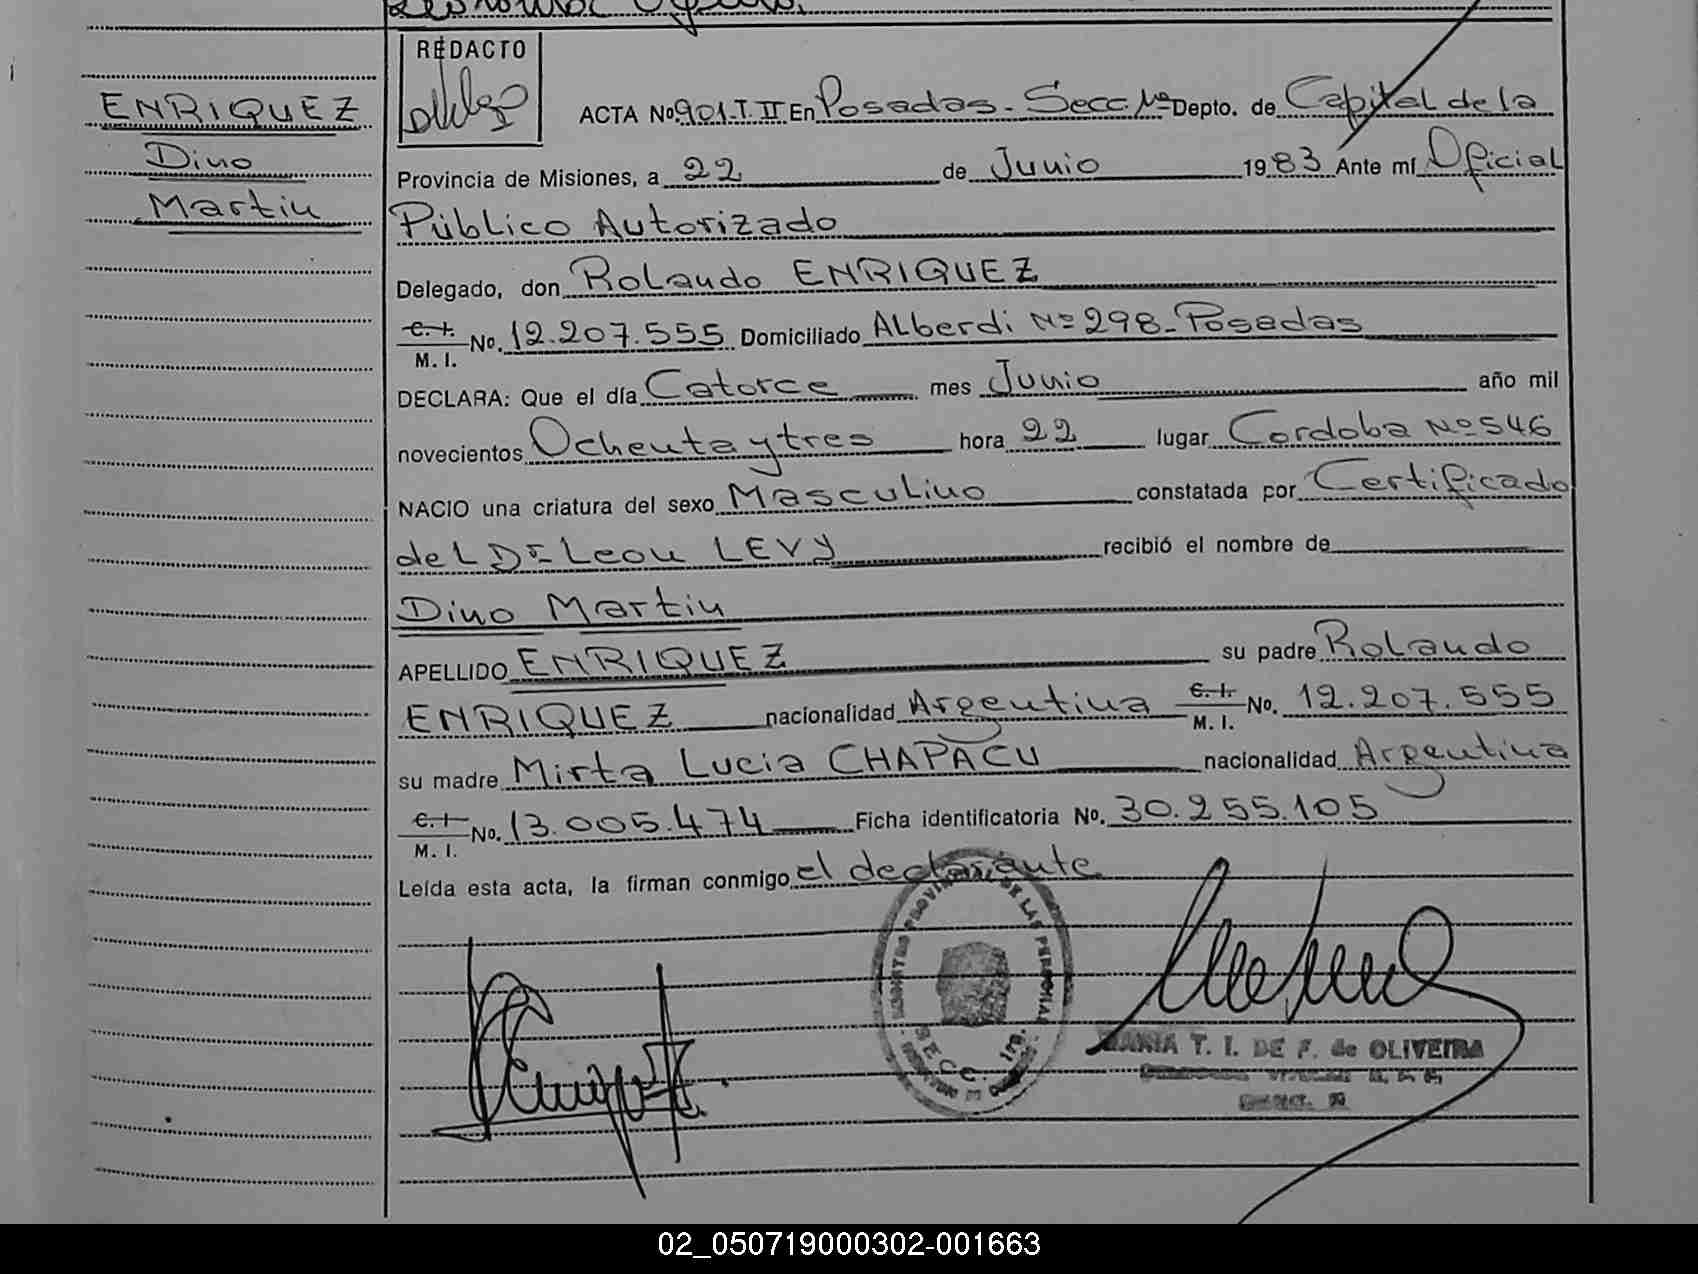 ENRIQUEZ
Dino
Martin
REDACTO
ACTA No 901.T.II En Posadas - Secc. 1ª Depto. de Capital de la
Provincia de Misiones, a 22 de Junio 1983 Ante mí Oficial
Público Autorizado
Delegado, don Rolando ENRIQUEZ
C. I.
M. I. No. 12.207.555 Domiciliado ALberdi Nº 298 - Posadas
DECLARA: Que el día Catorce mes Junio año mil
novecientos Ochenta y tres hora 22 lugar Cordoba Nº 546
NACIO una criatura del sexo Masculino constatada por Certificado
del Dr Leon LEVY recibió el nombre de
Dino Martin
APELLIDO ENRIQUEZ su padre Rolando
ENRIQUEZ nacionalidad Argentina C. I. M. I. No. 12.207.555
su madre Mirta Lucia CHAPACU nacionalidad Argentina
C. I.
M. I. No. 13.005.474 Ficha identificatoria No. 30.255.105
Leída esta acta, la firman conmigo el declarante
DE LAS PERSONAS
SECC. 1ra.
MARIA T. I. DE F. de OLIVEIRA
02_050719000302-001663